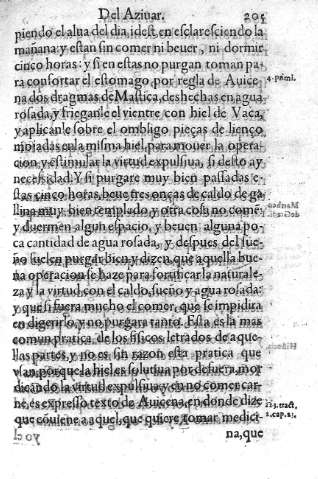 Del Aziuar. 205
piendo el alua del dia, idest, en esclaresciendo la
mañana: y estan sin comer ni beuer, ni dormir
cinco horas: y si en estas no purgan toman pa
ra confortar el estomago, por regla de Auice
na dos dragmas de Mastica, deshechas en agua
rosada, y frieganle el vientre con hiel de Vaca,
y aplicanle sobre el ombligo pieças de lienço
mojadas en la misma hiel, para mouer la opera-
cion y estimular la virtud expulsiua, si desto ay
necesidad. Y si purgare muy bien passadas e-
stas cinco horas, beue tres onças de caldo de ga
llina muy bien templado, y otra cosa no come,
y duermen algun espacio, y beuen alguna po-
ca cantidad de agua rosada, y despues del sue-
ño suelen purgar bien y dizen que aquella bue
na operacion se haze para fortificar la naturale-
za y la virtud con el caldo, sueño y agua rosada:
y que si fuera mucho el comer, que se impidira
en digerirlo, y no purgara tanto. Esta es la mas
comun pratica de los fisicos letrados de aque-
llas partes, y no es sin razon esta pratica que
vsan, porque la hiel es solutiua por defuera, mor
dicando la virtud expulsiua y en no comer car-
ne, es expresso texto de Auicena, en donde dize
que cõuiene a aquel, que quiere tomar medici-
na, que
4. primi.
2. cap. 2.